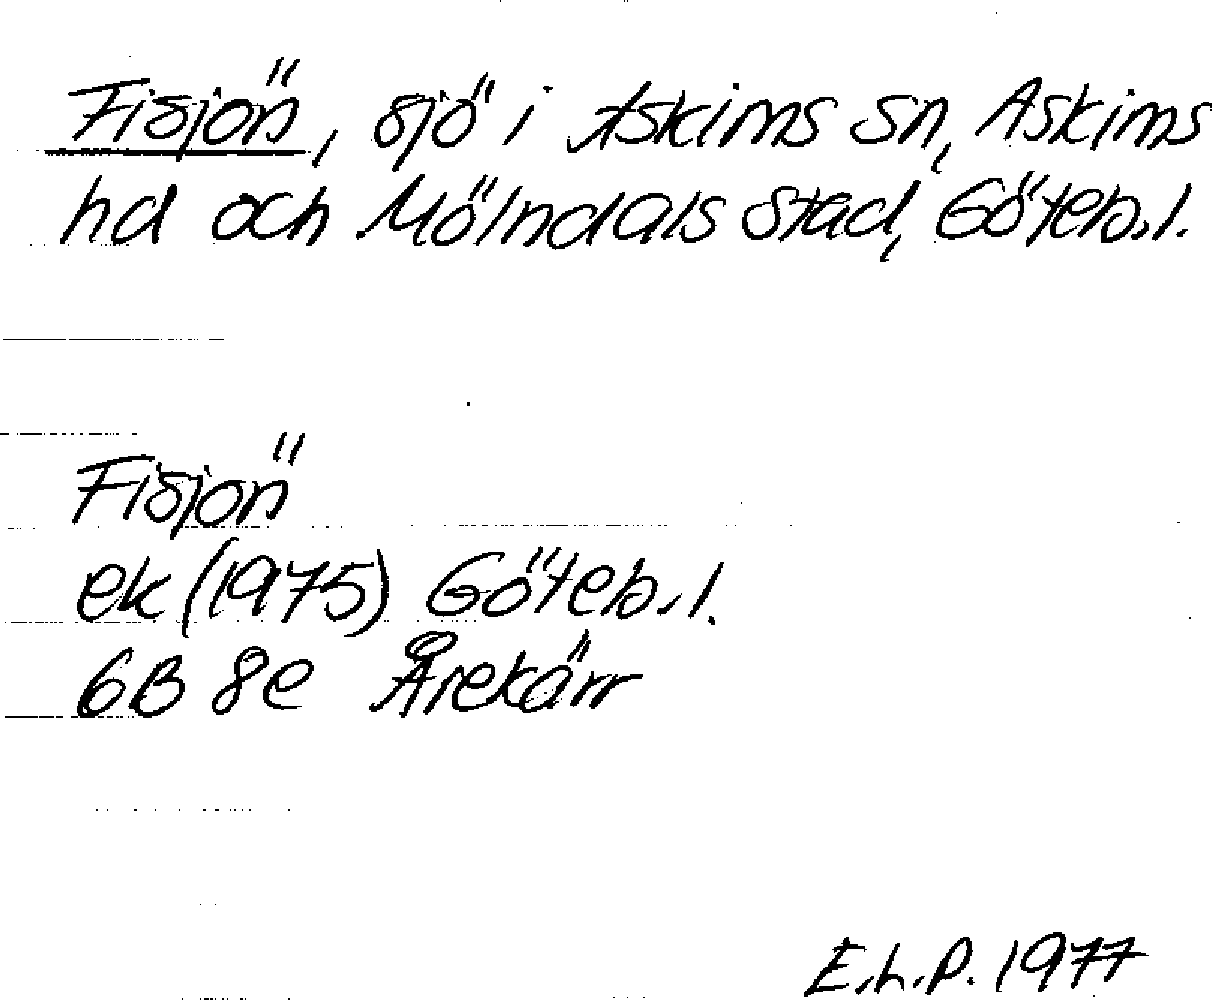 Fisjön, sjö i Askims sn, Askims
hd och Mölndals stad, Göteb.l.
Fisjön
ek (1975) Göteb.l.
6B 8e Årekärr
E.h.P. 1977